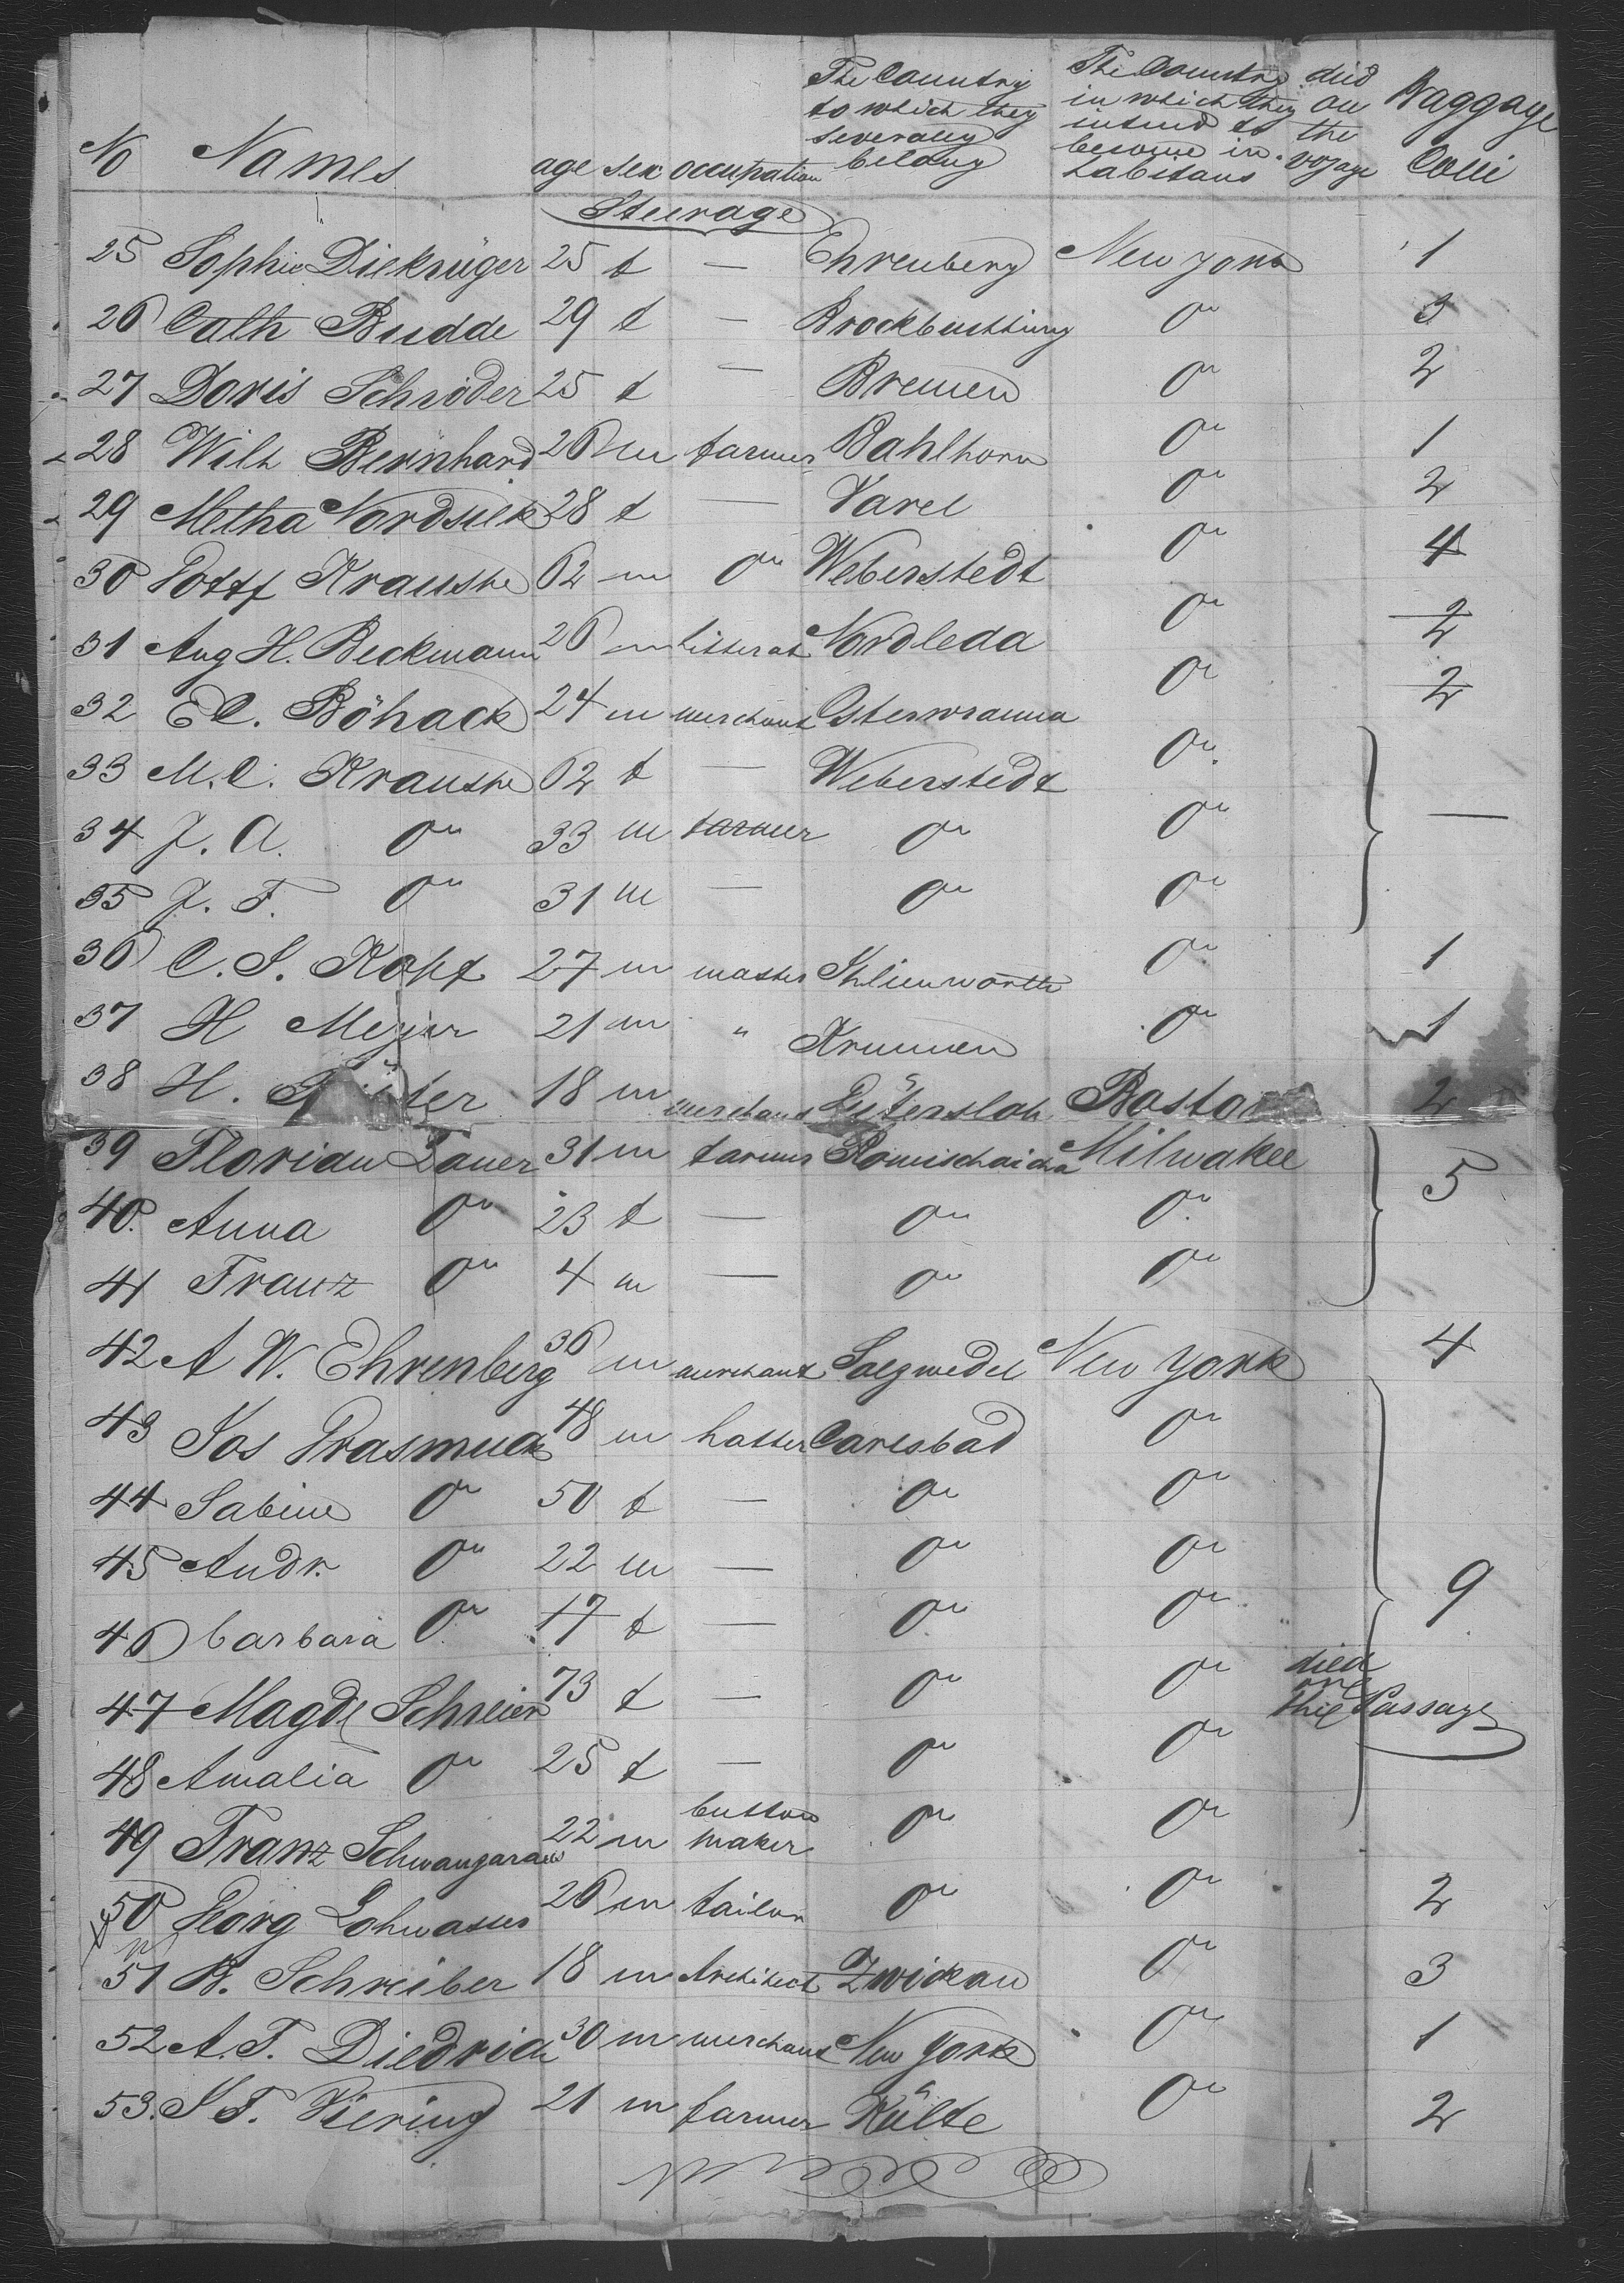 No Names age sex occupation The Country to which they severally belong The Country in which they intend to become inhabitans died on the voyage Baggage Colli
Steerage
25 Sophie Diekrüger 25 f — Ehrenberg New York 1
26 Cath Budde 29 f — do 3
27 Doris Schröder 25 f — Bremen do 2
28 Wilh Bernhard 26 m farmer Bahlhorn do 1
29 Metha Nordsiek 28 f — Varel do 2
30 Kraushe 62 m do Weberstedt do 4
31 Aug H. Beckmann 26 m Litterat Nordleda do 2
32 E C. Böhack 24 m merchant do 2
33 M. C. Kraushe 62 f — Weberstedt do
34 J. A. do 33 m farmer do do —
35 J. F. do 31 m — do do
36 C. S. Kopf 27 m master do 1
37 H Meyer 21 m " Krummen do 1
38 H. 18 m merchant Gütersloh Boston 2
39 Florian Lauer 31 m farmer Milwakee 5
40. Anna do 23 f — do do
41 Franz do 4 m — do do
42 A W. Ehrenberg 36 m merchant Salzwedel New York 4
43 Jos Prasmuck 48 m hatter Carlsbad do
44 Sabine do 50 f — do do
45 Andr. do 22 m — do do
46 barbara do 17 f — do do 9
47 Magde Schreier 73 f — do do died on the Passage
48 Amalia do 25 f — do do
49 Franz 22 m button maker do do
50 Georg Lohwasser 26 m tailor do do 2
51 B. Schreiber 18 m Architect Zwickau do 3
52 A. F. Diedrich 30 m merchant New York do 1
53. F. Viering 21 m farmer Külte do 2